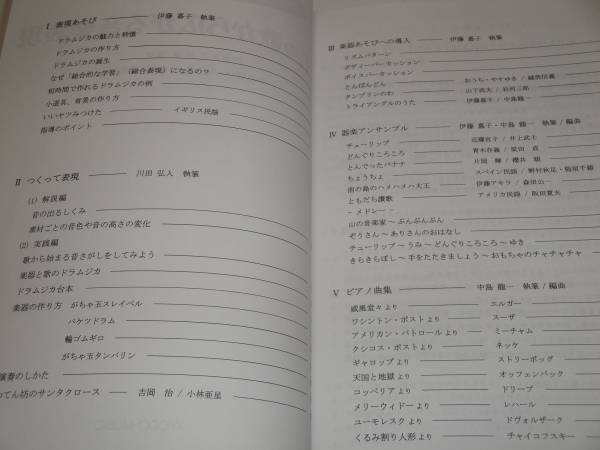 I 表現あそび 伊藤 嘉子 執筆
ドラムジカの魅力と特徴
ドラムジカの作り方
ドラムジカの誕生
なぜ「総合的な学習」(総合表現)になるの?
短時間で作れるドラムジカの例
小道具、背景の作り方
いいヤツみつけた イギリス民謡
指導のポイント
II つくって表現 川田 弘人 執筆
(1) 解説編
音の出るしくみ
素材ごとの音色や音の高さの変化
(2) 実践編
歌から始まる音さがしをしてみよう
楽器と歌のドラムジカ
ドラムジカ台本
楽器の作り方 がちゃ玉スレイベル
バケツドラム
輪ゴムギロ
がちゃ玉タンバリン
演奏のしかた
てん坊のサンタクロース 吉岡 治 / 小林亜星
III 楽器あそびへの導入 伊藤 嘉子 執筆
リズムパターン
ボディーパーカッション
ボイスパーカッション
とんぼどん おうち・やすゆき /
タンブリンのわ 山下
トライアングルのうた 伊藤嘉子 / 中島龍一
IV 器楽アンサンブル 伊藤 嘉子・中島 龍一 執筆 / 編曲
チューリップ 近藤宮子 / 井上武士
どんぐりころころ 青木存義 / 梁田 貞
とんでったバナナ 片岡 輝 / 櫻井 順
ちょうちょ スペイン民謡 / 野村秋足・稲垣千穎
南の島のハメハメハ大王 伊藤アキラ / 森田公一
ともだち讃歌 アメリカ民謡 / 阪田寛夫
- メドレー -
山の音楽家～ぶんぶんぶん
ぞうさん～ありさんのおはなし
チューリップ～うみ～どんぐりころころ～ゆき
きらきらぼし～手をたたきましょう～おもちゃのチャチャチャ
V ピアノ曲集 中島 龍一 執筆 / 編曲
威風堂々より エルガー
ワシントン・ポストより スーザ
アメリカン・パトロールより ミーチャム
クシコス・ポストより ネッケ
ギャロップより ストリーボッグ
天国と地獄より オッフェンバック
コッペリアより ドリーブ
メリーウィドーより レハール
ユーモレスクより ドヴォルザーク
くるみ割り人形より チャイコフスキー